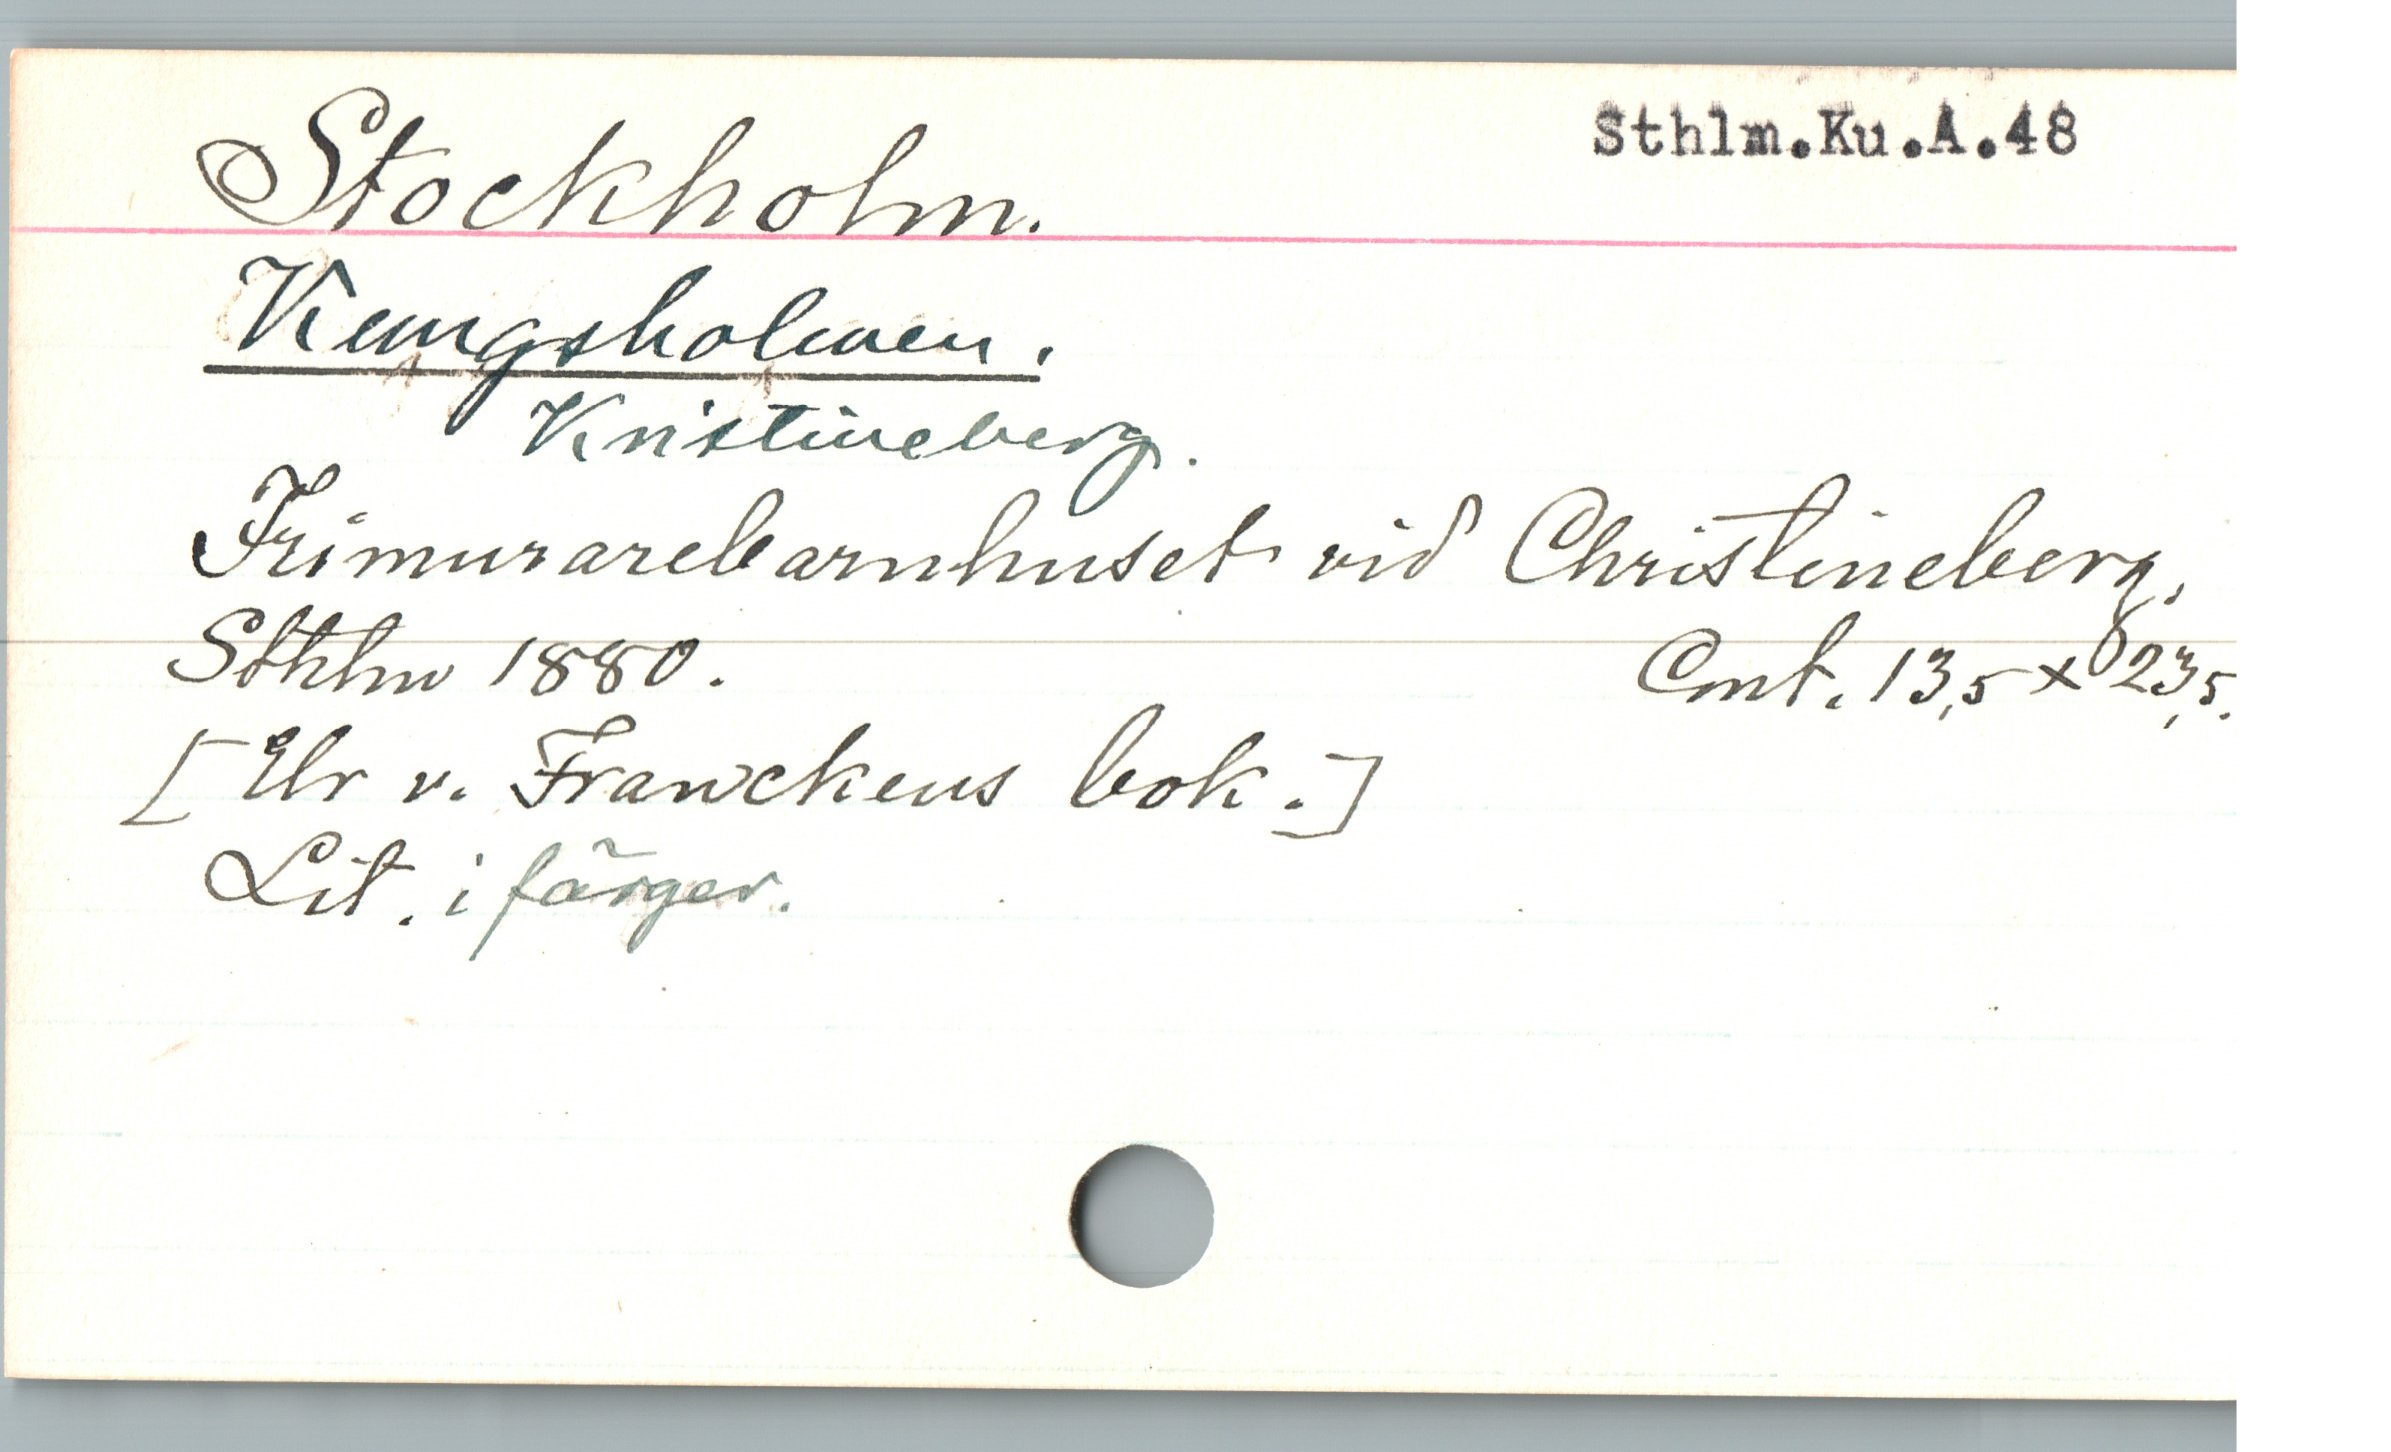 Sthlm.Ku.A.48
Stockholm.
Kungsholmen.
Kristineberg.
Frimurarebarnhuset vid Christineberg.
Sthlm 1880. Cmt. 13,5 x 23,5.
[Ur v. Franckens bok.]
Lit. i färger.